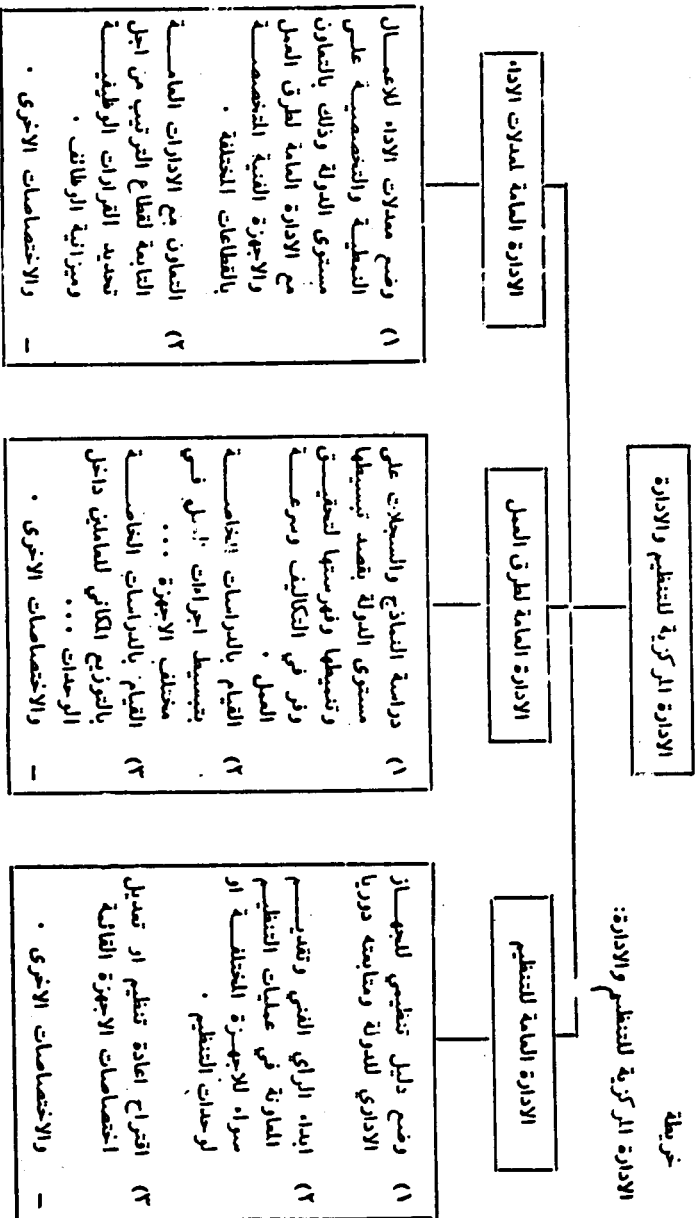 خريطة
الادارة المركزية للتنظيم والادارة:
الادارة المركزية للتنظيم والادارة
الادارة العامة للتنظيم
١) وضع دليل تنظيمي للجهاز
الاداري للدولة ومتابعته دوريا
٢) ابداء الراي الفني وتقديم
المعاونة في عمليات التنظيم
سواء للاجهزة المختلفة او
لوحدات التنظيم .
٣) اقتراح اعادة تنظيم او تعديل
اختصاصات الاجهزة القائمة
– والاختصاصات الاخرى .
الادارة العامة لطرق العمل
١) دراسة النماذج والسجلات على
مستوى الدولة بقصد تبسيطها
وتنميطها وفهرستها لتحقيق
وفر في التكاليف وسرعة
العمل .
٢) القيام بالدراسات الخاصة
بتبسيط اجراءات العمل في
مختلف الاجهزة ...
٣) القيام بالدراسات الخاصة
بالتوزيع المكاني للعاملين داخل
الوحدات ...
– والاختصاصات الاخرى .
الادارة العامة لمعدلات الاداء
١) وضع معدلات الاداء للاعمال
النمطية والتخصصية على
مستوى الدولة وذلك بالتعاون
مع الادارة العامة لطرق العمل
والاجهزة الفنية المتخصصة
بالقطاعات المختلفة .
٢) التعاون مع الادارات العامة
التابعة لقطاع الترتيب من اجل
تحديد القرارات الوظيفية
وميزانية الوظائف .
– والاختصاصات الاخرى .